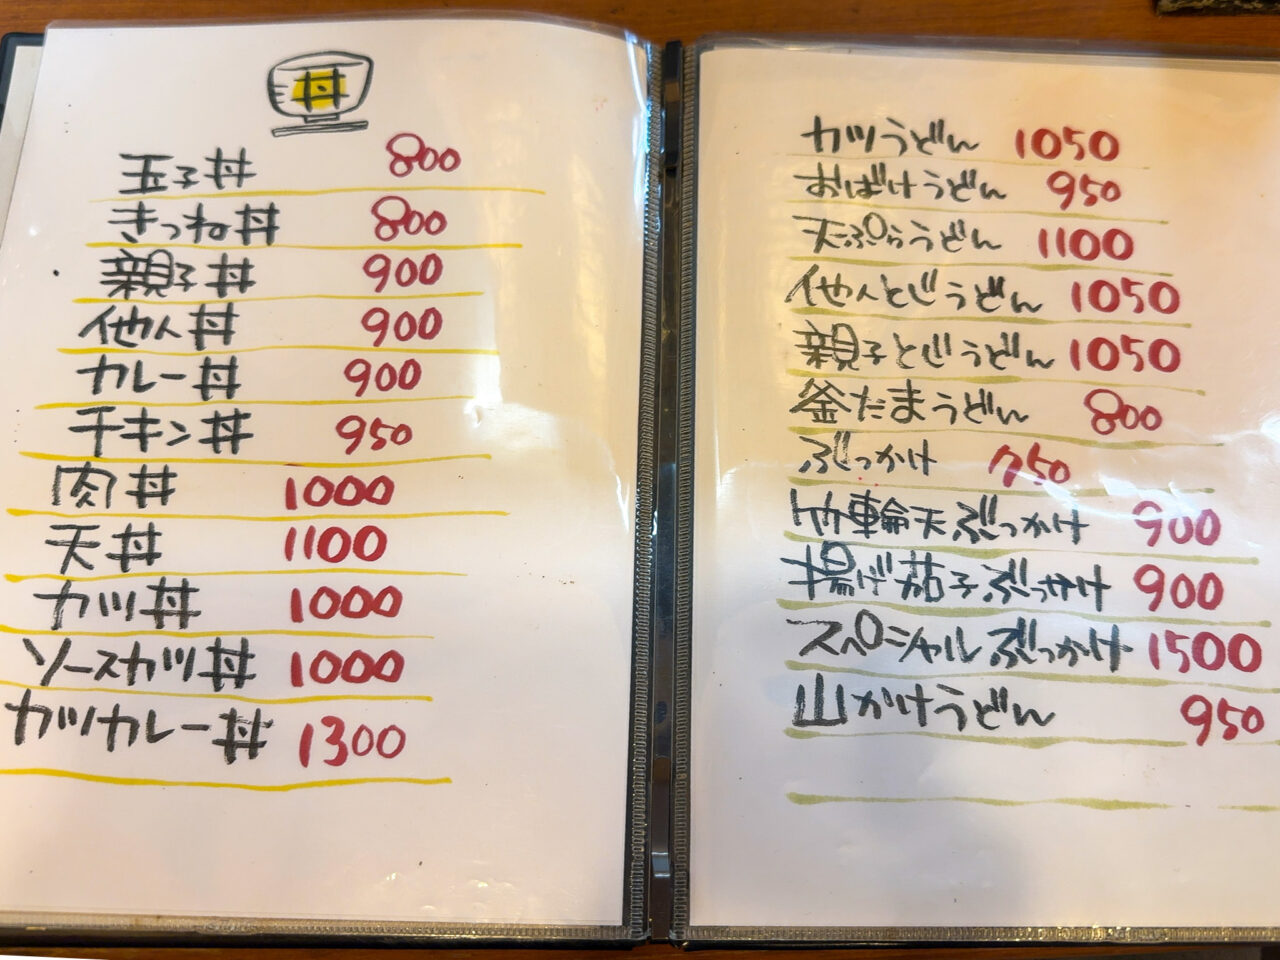 丼
玉子丼 800
きつね丼 800
親子丼 900
他人丼 900
カレー丼 900
チキン丼 950
肉丼 1000
天丼 1100
カツ丼 1000
ソースカツ丼 1000
カツカレー丼 1300
カツうどん 1050
おばけうどん 950
天ぷらうどん 1100
他人とじうどん 1050
親子とじうどん 1050
釜たまうどん 800
ぶっかけ 750
竹輪天ぶっかけ 900
揚げ茄子ぶっかけ 900
スペシャルぶっかけ 1500
山かけうどん 950